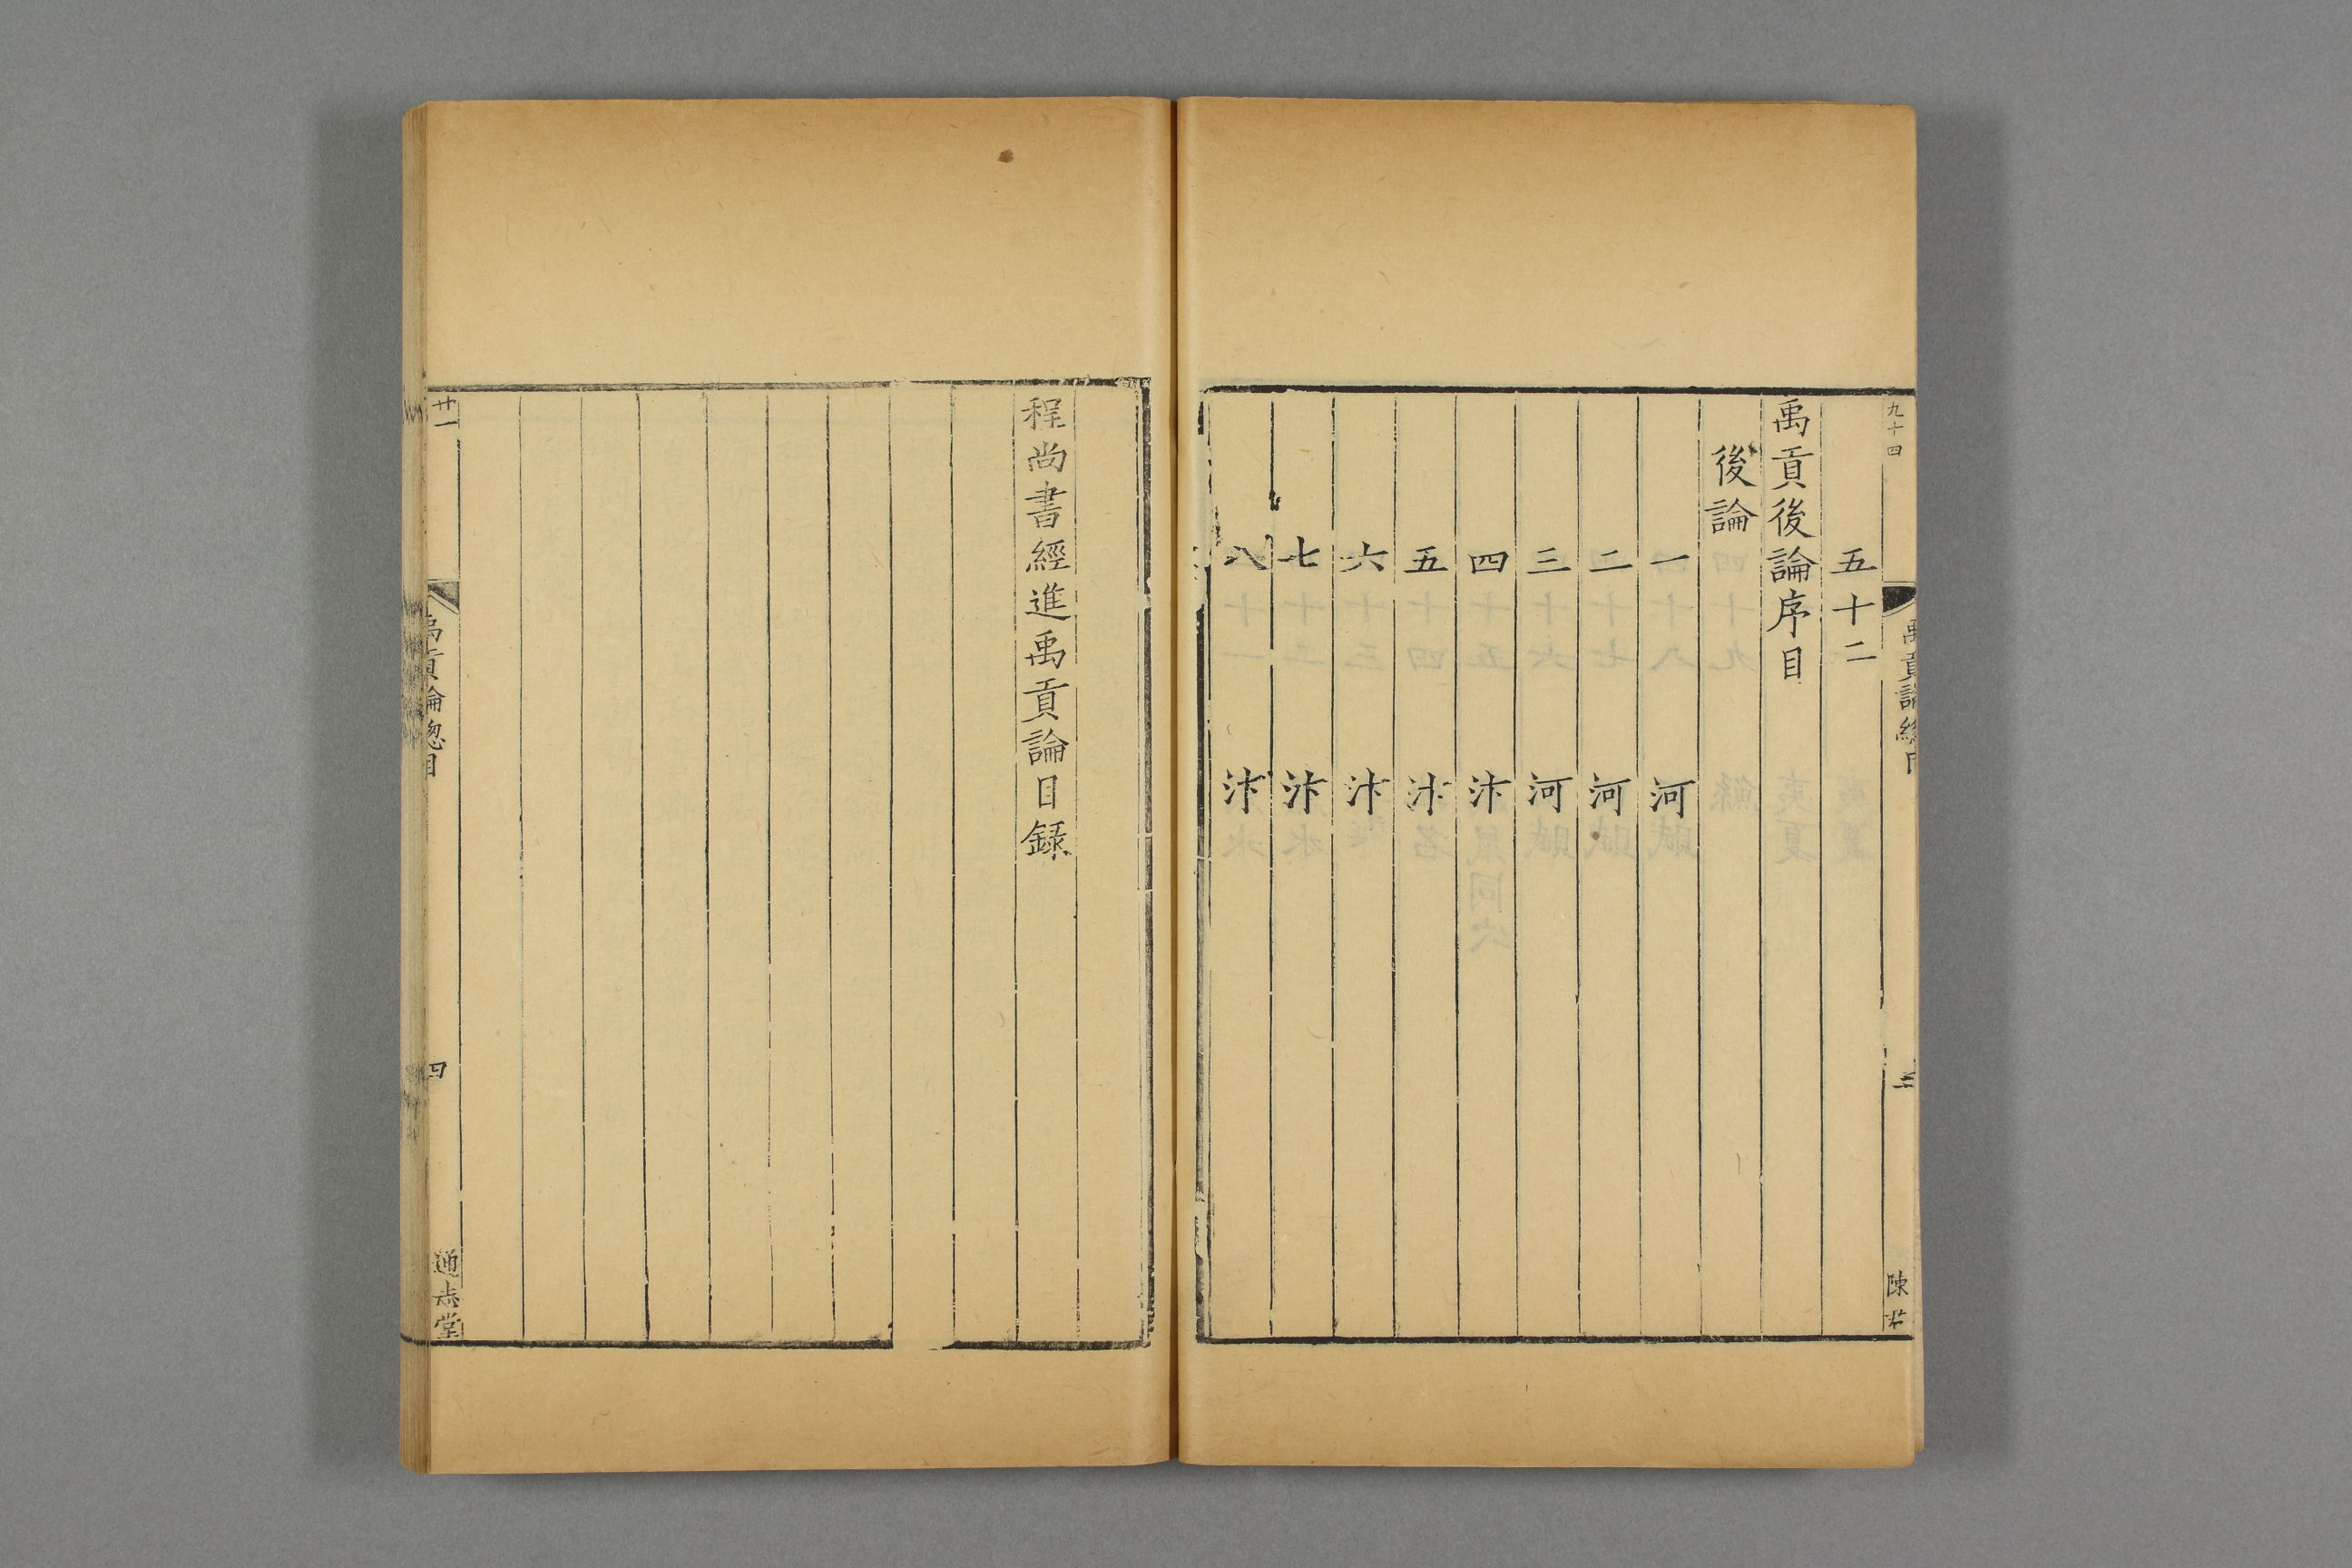 九十四
禹貢論總目
三
陳君
五十二
禹貢後論序目
後論
一 河
二 河
三 河
四 汴
五 汴
六 汴
七 汴
八 汴
程尚書經進禹貢論目録
廿一
禹貢論總目
四
通志堂